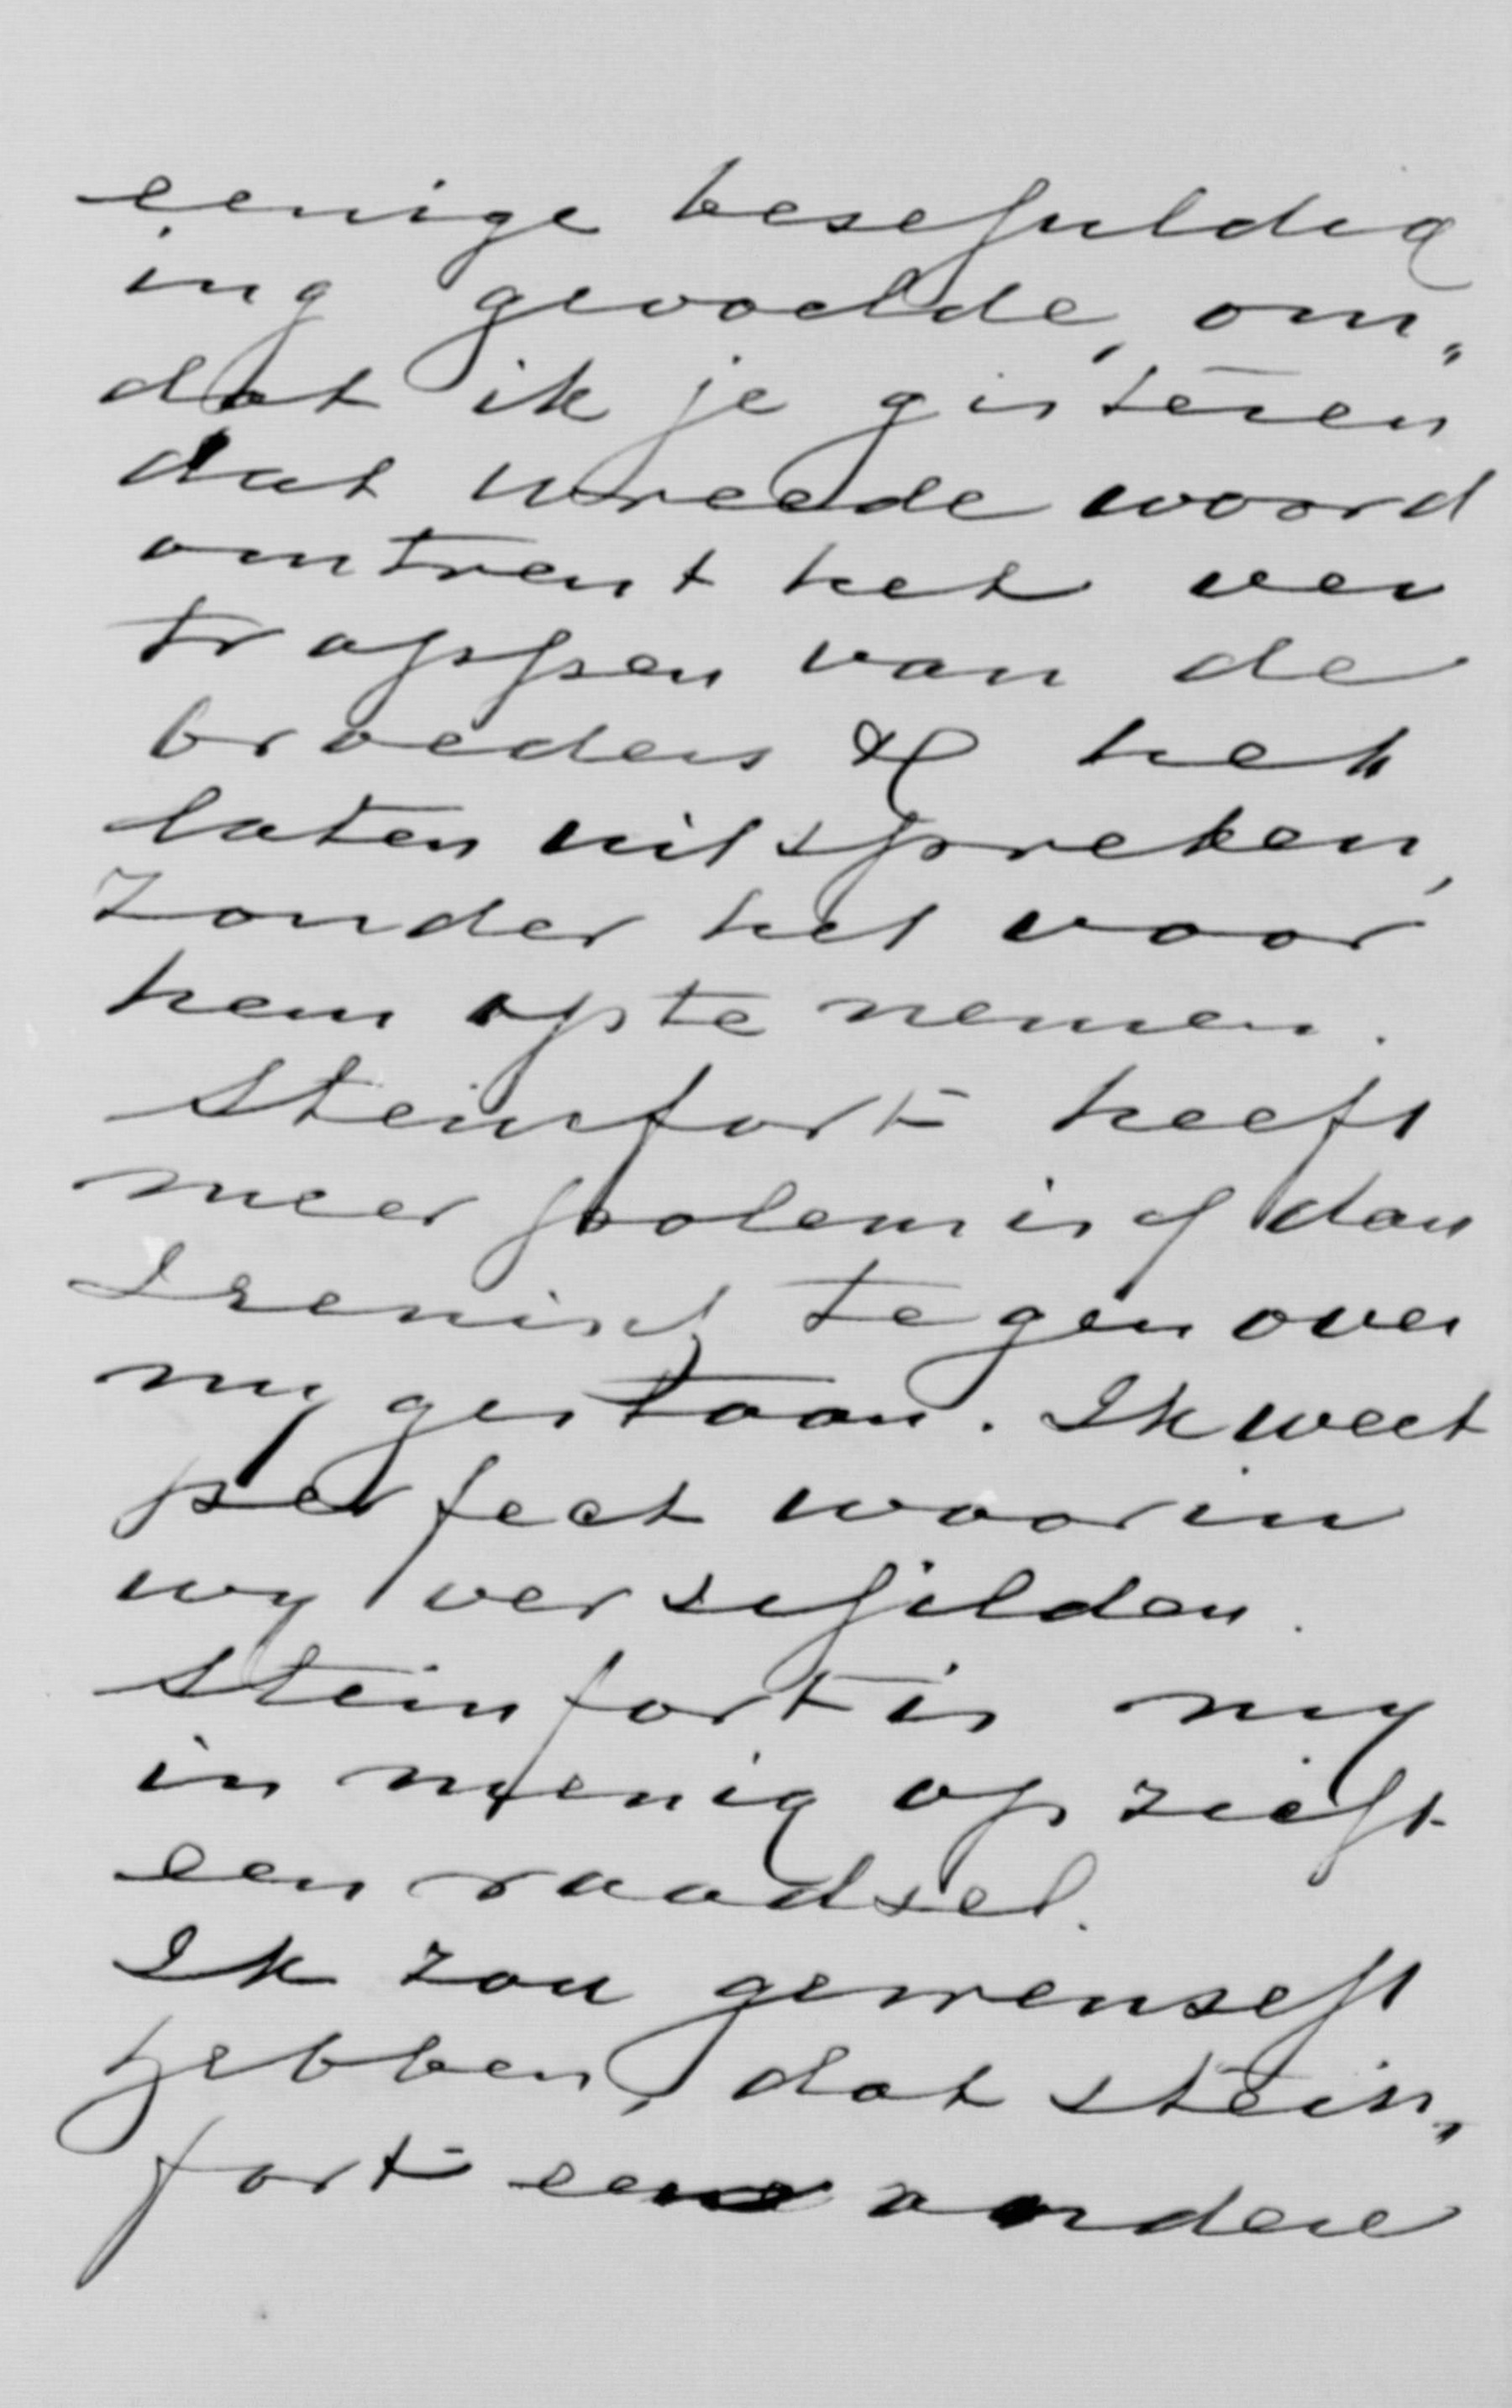 eenige beschuldig
ing gevoelde, om„
dat ik je gisteren
dat wreede woord
omtrent het ver
trappen van de
broeders & het
laten uitspreken,
zonder het voor
hem op te nemen.
Steinfort heeft
meer polemisch dan
Irenisch tegenover
my gestaan. Ik weet
perfect waarin
wy verschilden.
Steinfort is my
in menig opzicht
een raadsel.
Ik zou gewenscht
hebben, dat Stein„
fort een andere